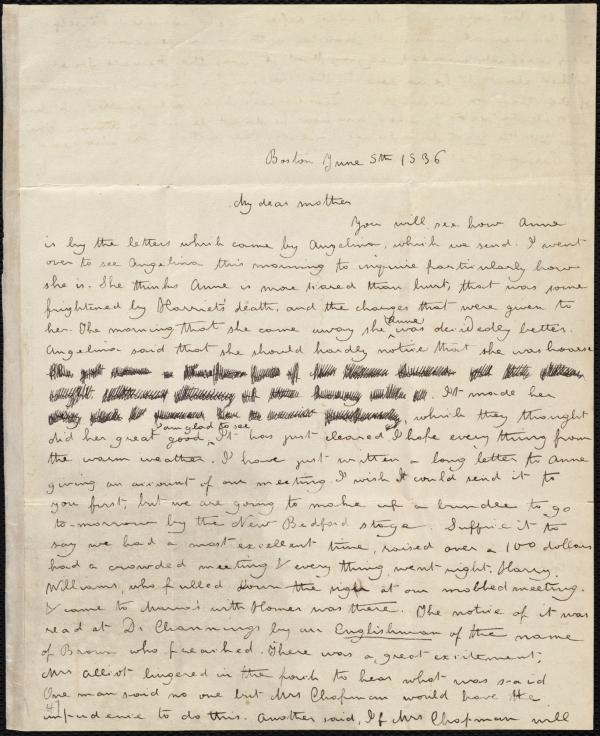 Boston June 5th 1836
My dear mother
You will see how Anne
is by the letters which came by Angelina, which we send. I went
over to see Angelina this morning to inquire particularly how
she is. She thinks Anne is more scared than hurt, that was some
frightened by Harriet's death, and the charges that were given to
her. The morning that she came away she Anne was decidedly better.
Angelina said that she should hardly notice that she was hoarse
It made her
which they thought
did her great good, I am glad to see It has just cleared, I hope every thing from
the warm weather. I have just written a long letter to Anne
giving an account of our meeting I wish It could send it to
you first, but we are going to make up a bundle to go
to-morrow by the New Bedford stage. Suffice it to
say we had a most excellent time, raised over a 100 dollars
had a crowded meeting & every thing went right. Harry,
Williams, who pulled down the sign at our mobbed meeting.
& came to Maria's with Homer was there. The notice of it was
read at Dr Channings by an Englishman of the name
of Brown who preached. There was a great excitement;
Mrs Alliot lingered in the porch to hear what was said
One man said no one but Mrs Chapman would have the
impudence to do this. Another said, If Mrs Chapman will